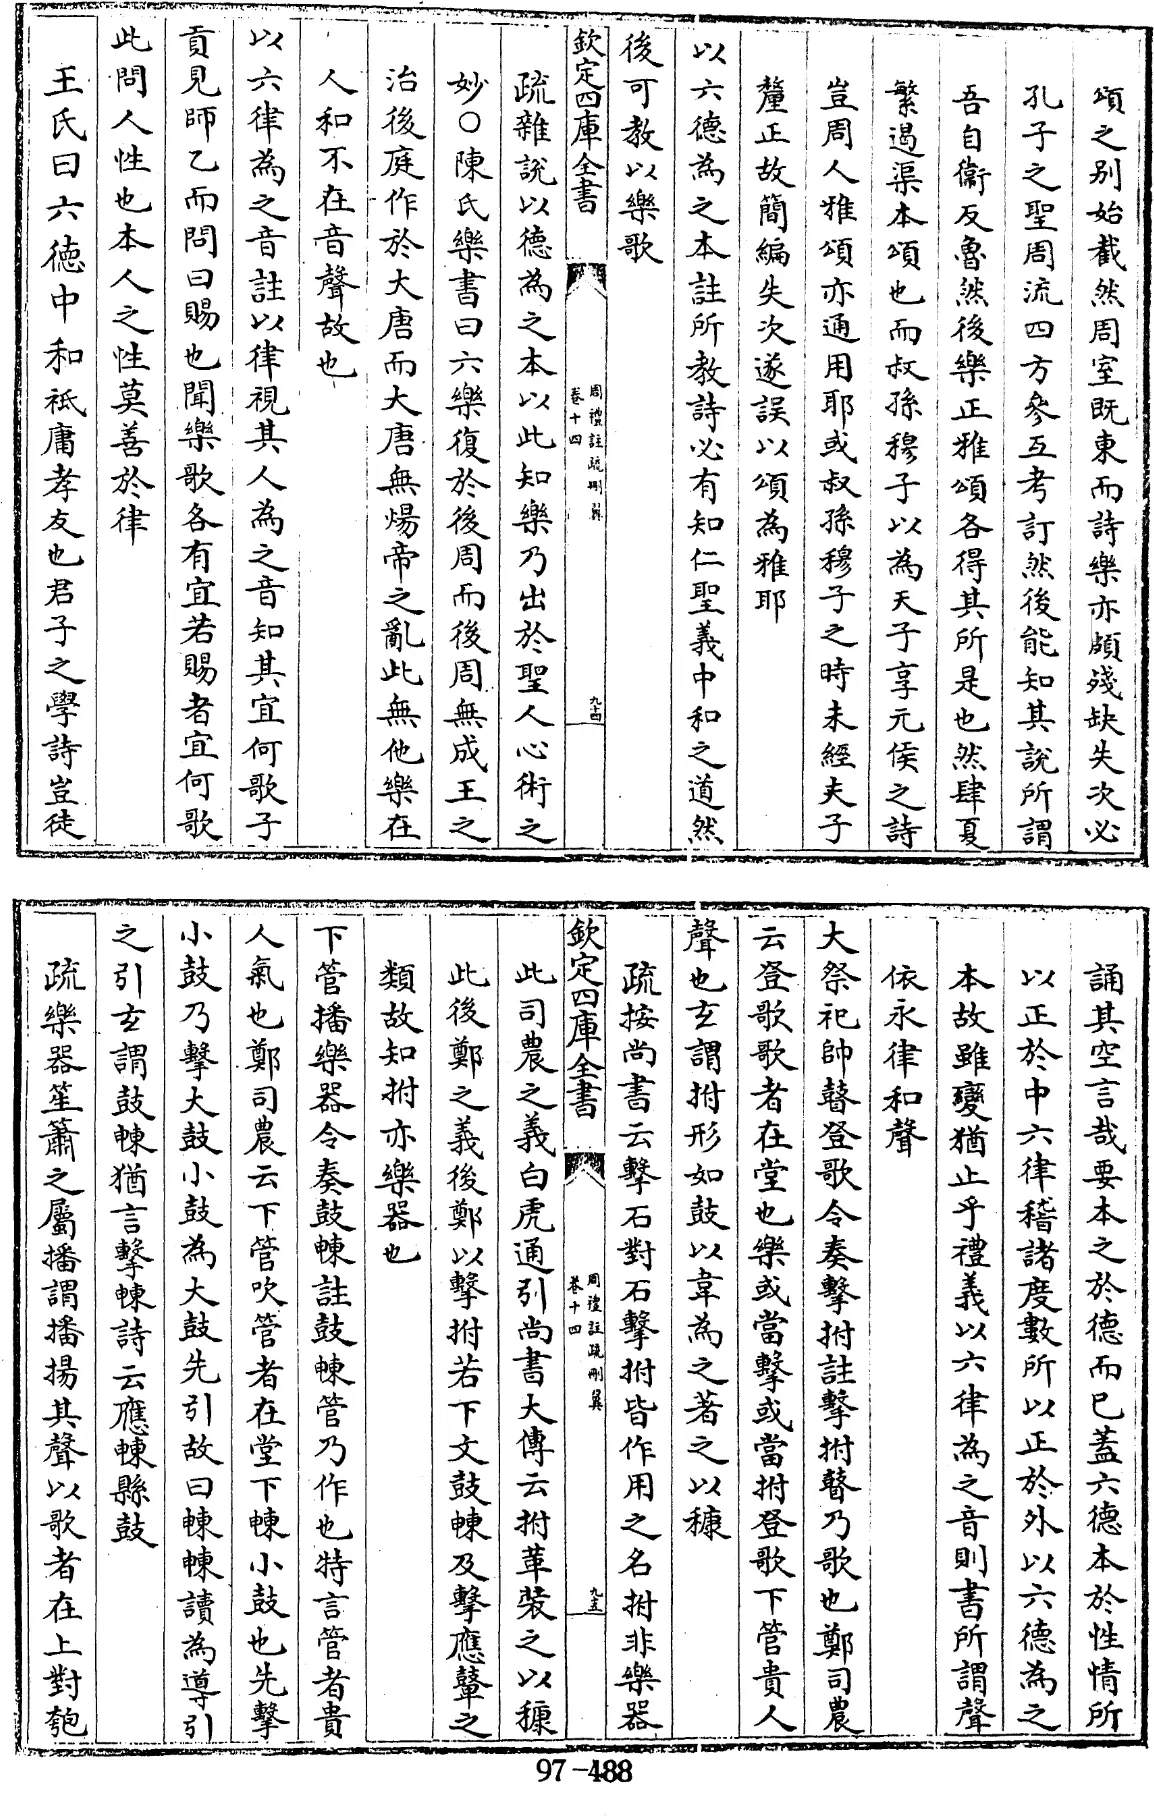 頌之别始截然周室既東而詩樂亦頗殘缺失次必
孔子之聖周流四方參互考訂然後能知其說所謂
吾自衞反魯然後樂正雅頌各得其所是也然肆夏
繁遏渠本頌也而叔孫穆子以為天子享元侯之詩
豈周人雅頌亦通用耶或叔孫穆子之時未經夫子
釐正故簡編失次遂誤以頌為雅耶
以六德為之本註所教詩必有知仁聖義中和之道然
後可教以樂歌
欽定四庫全書
周禮註疏刪翼
卷十四
九十四
疏雜說以德為之本以此知樂乃出於聖人心術之
妙○陳氏樂書曰六樂復於後周而後周無成王之
治後庭作於大唐而大唐無煬帝之亂此無他樂在
人和不在音聲故也
以六律為之音註以律視其人為之音知其宜何歌子
貢見師乙而問曰賜也聞樂歌各有宜若賜者宜何歌
此問人性也本人之性莫善於律
王氏曰六徳中和祗庸孝友也君子之學詩豈徒
誦其空言哉要本之於德而已蓋六德本於性情所
以正於中六律稽諸度數所以正於外以六德為之
本故雖變猶止乎禮義以六律為之音則書所謂聲
依永律和聲
大祭祀帥瞽登歌令奏擊拊註擊拊瞽乃歌也鄭司農
云登歌歌者在堂也樂或當擊或當拊登歌下管貴人
聲也玄謂拊形如鼓以韋為之著之以穅
疏按尚書云擊石對石擊拊皆作用之名拊非樂器
欽定四庫全書
周禮註疏刪翼
卷十四
九十五
此司農之義白虎通引尚書大傳云拊革裝之以穅
此後鄭之義後鄭以擊拊若下文鼓朄及擊應鼙之
類故知拊亦樂器也
下管播樂器令奏鼓朄註鼓朄管乃作也特言管者貴
人氣也鄭司農云下管吹管者在堂下朄小鼓也先擊
小鼓乃擊大鼓小鼓為大鼓先引故曰朄朄讀為導引
之引玄謂鼓朄猶言擊朄詩云應朄縣鼓
疏樂器笙簫之屬播謂播揚其聲以歌者在上對匏
97-488